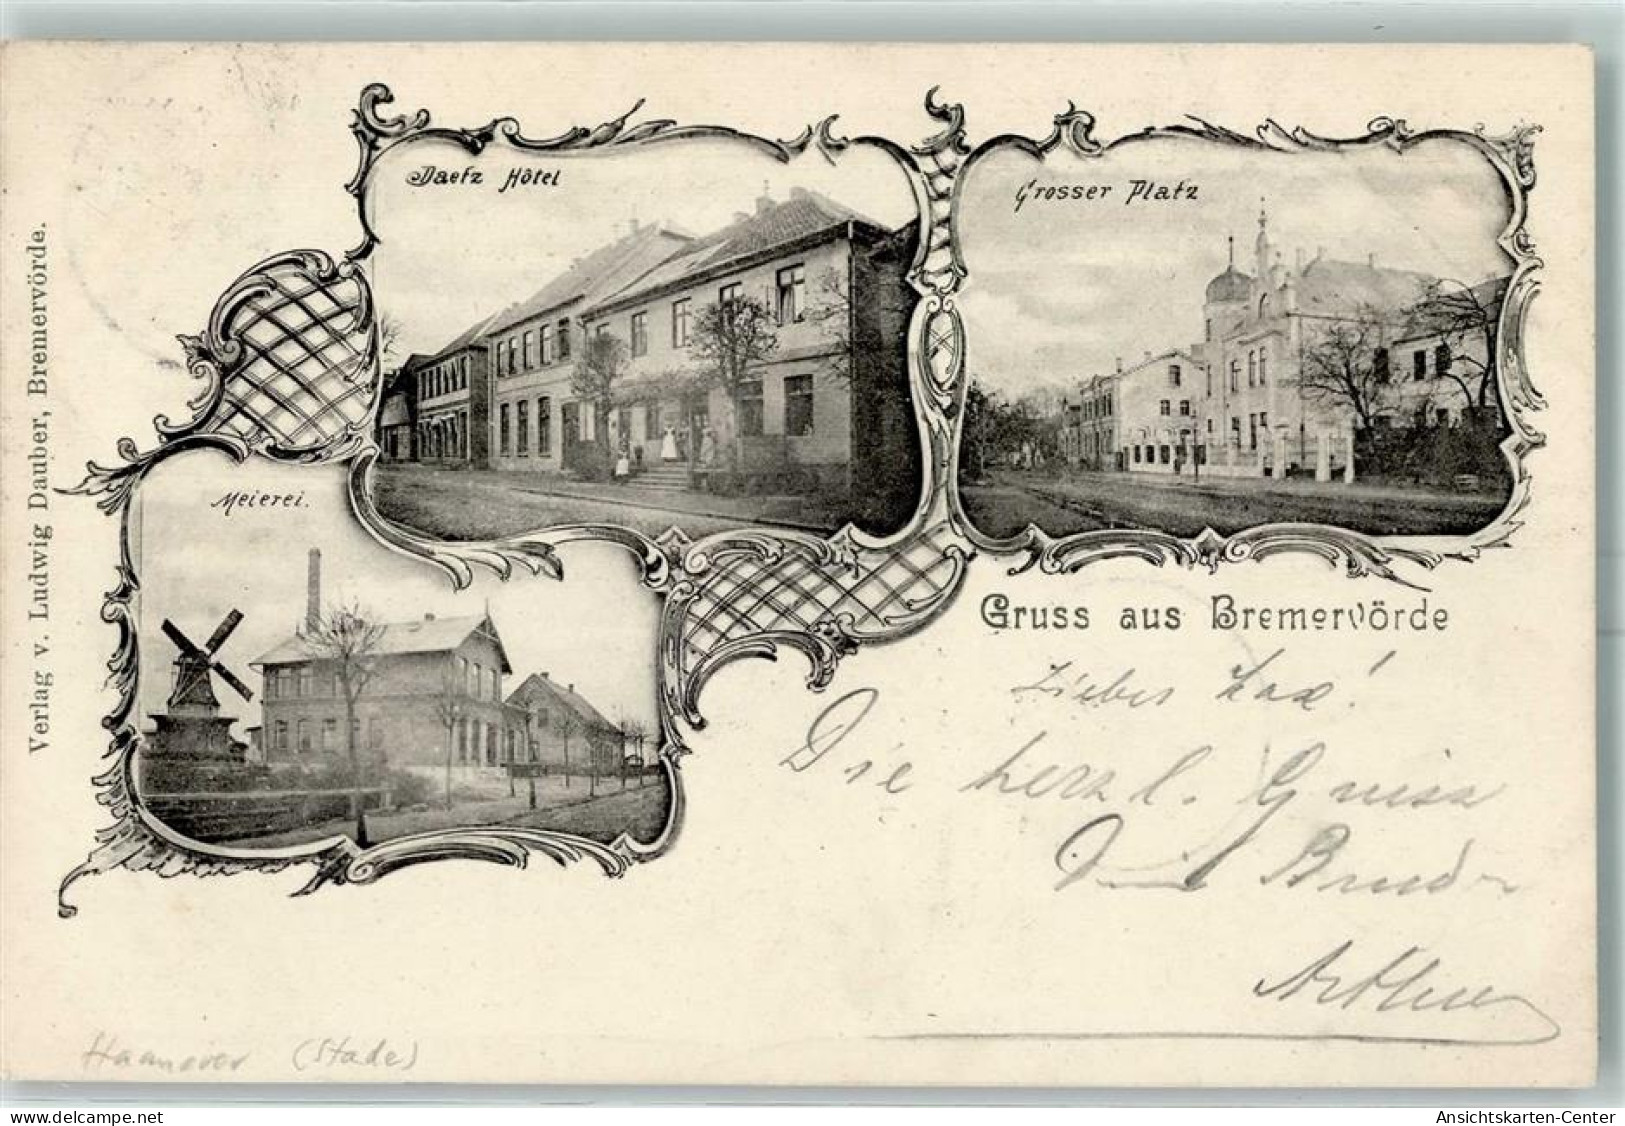 Daetz Hôtel
Grosser Platz
Meierei.
Verlag v. Ludwig Dauber, Bremervörde.
Gruss aus Bremervörde
Lieber
Die herzl. Grüsse
Dein Bruder
Arthur
Hannover (Stade)
delcampe.net
Ansichtskarten-Center